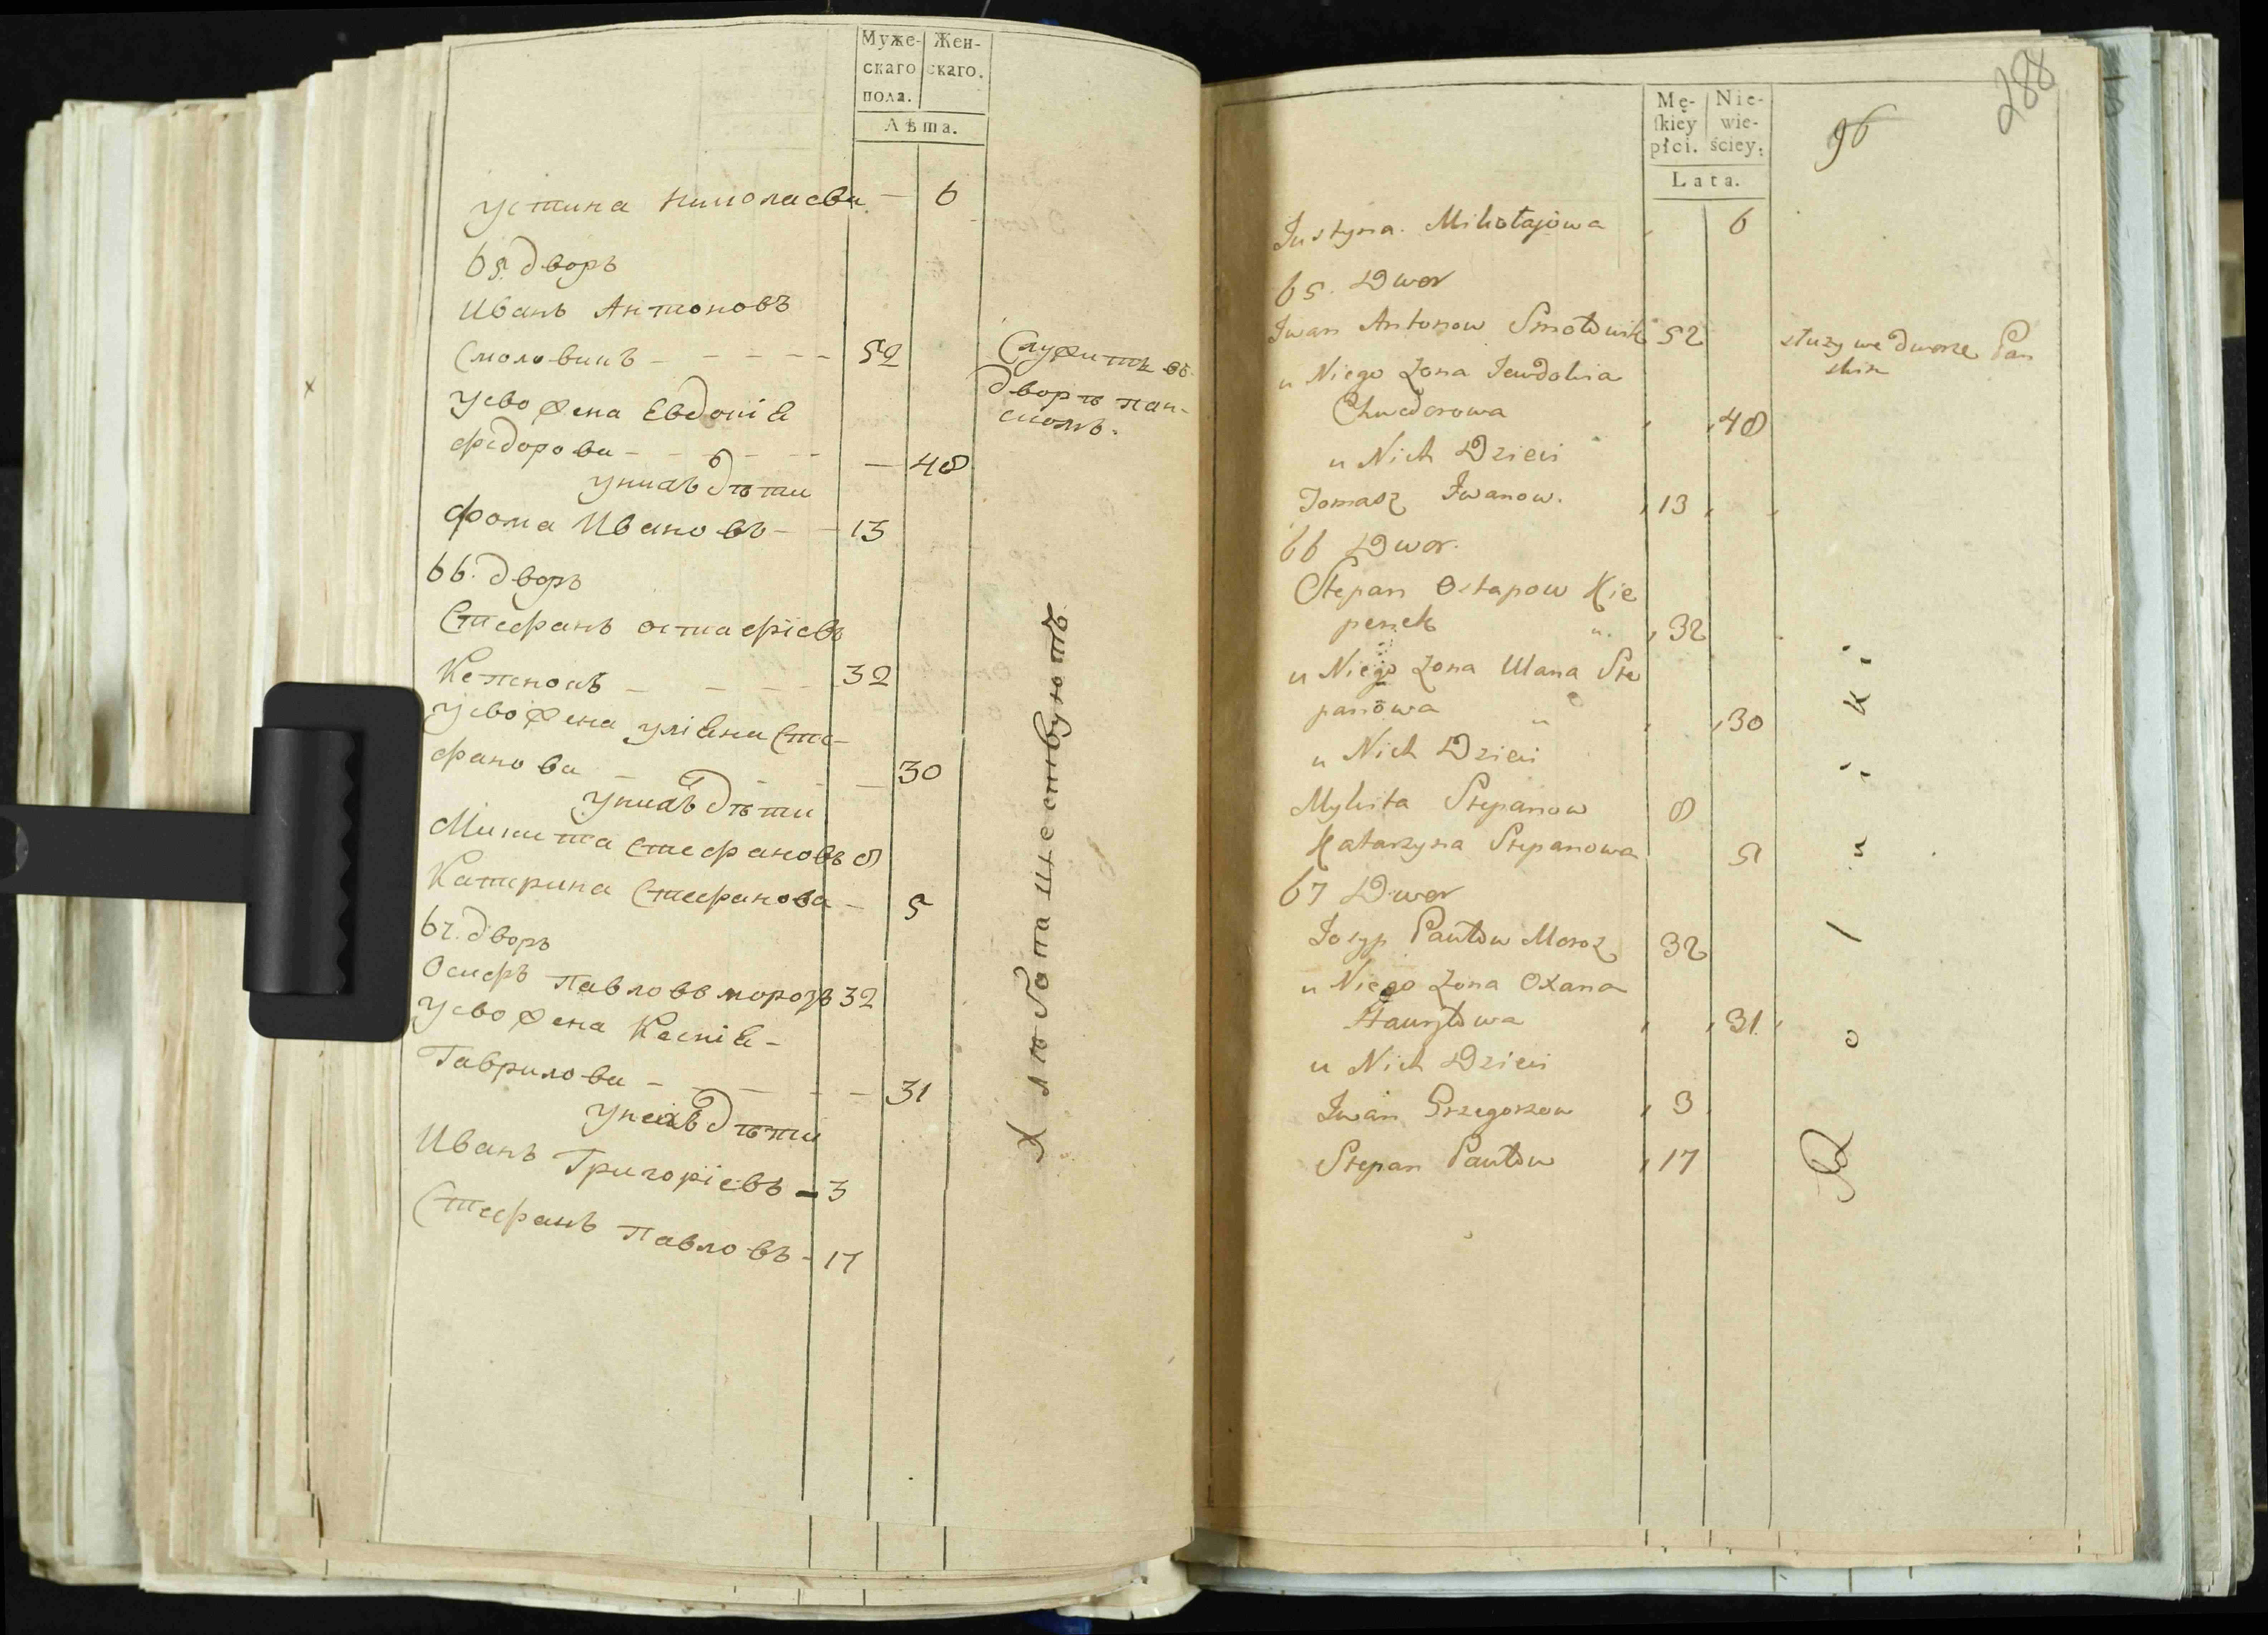 Муже-
скаго
пола.
Жен-
скаго.
Лѣта.
Устина Николаева — 6
65. дворъ
Иванъ Антоновъ
Смоловикъ - - - - - 52
Служитъ во
дворѣ пан-
скомъ.
У его жена Евдокіѧ
Федорова - - - - - — 48
У нихъ дѣти
Фома Ивановъ - - 13
66. дворъ
Стефанъ Остафіевъ
32
У его жена Уліѧна Сте-
фанова - - - - — 30
У нихъ дѣти
Микита Стефановъ 8
Катерина Стефанова — 5
67. дворъ
Осифъ Павловъ Морозъ 32
У его жена Ксеніѧ -
Гаврилова - - - - — 31
У нихъ дѣти
Иванъ Григоріевъ - 3
Стефанъ Павловъ - 17
Хлѣбопашествуютъ
288
96
Mę-
skiey
płci.
Nie-
wie-
ściey.
Lata.
Justyna Mikołajowa 6
65. Dwor
Iwan Antonow Smołowik 52
służy we dworze Pan
skim
u Niego Żona Jewdokia
Chwedorowa 48
u Nich Dzieci
Tomasz Iwanow. 13
66 Dwor.
Stepan Ostapow Kie
penek 32
u Niego Żona Ulana Ste
panowa 30
u Nich Dzieci
Mykita Stepanow 8
Katarzyna Stepanowa 5
67 Dwor
Josyp Pawłow Moroz 32
u Niego Żona Oxana
Hawryłowa 31
u Nich Dzieci
Iwan Grzegorzow 3
Stepan Pawłow 17
Rolnik